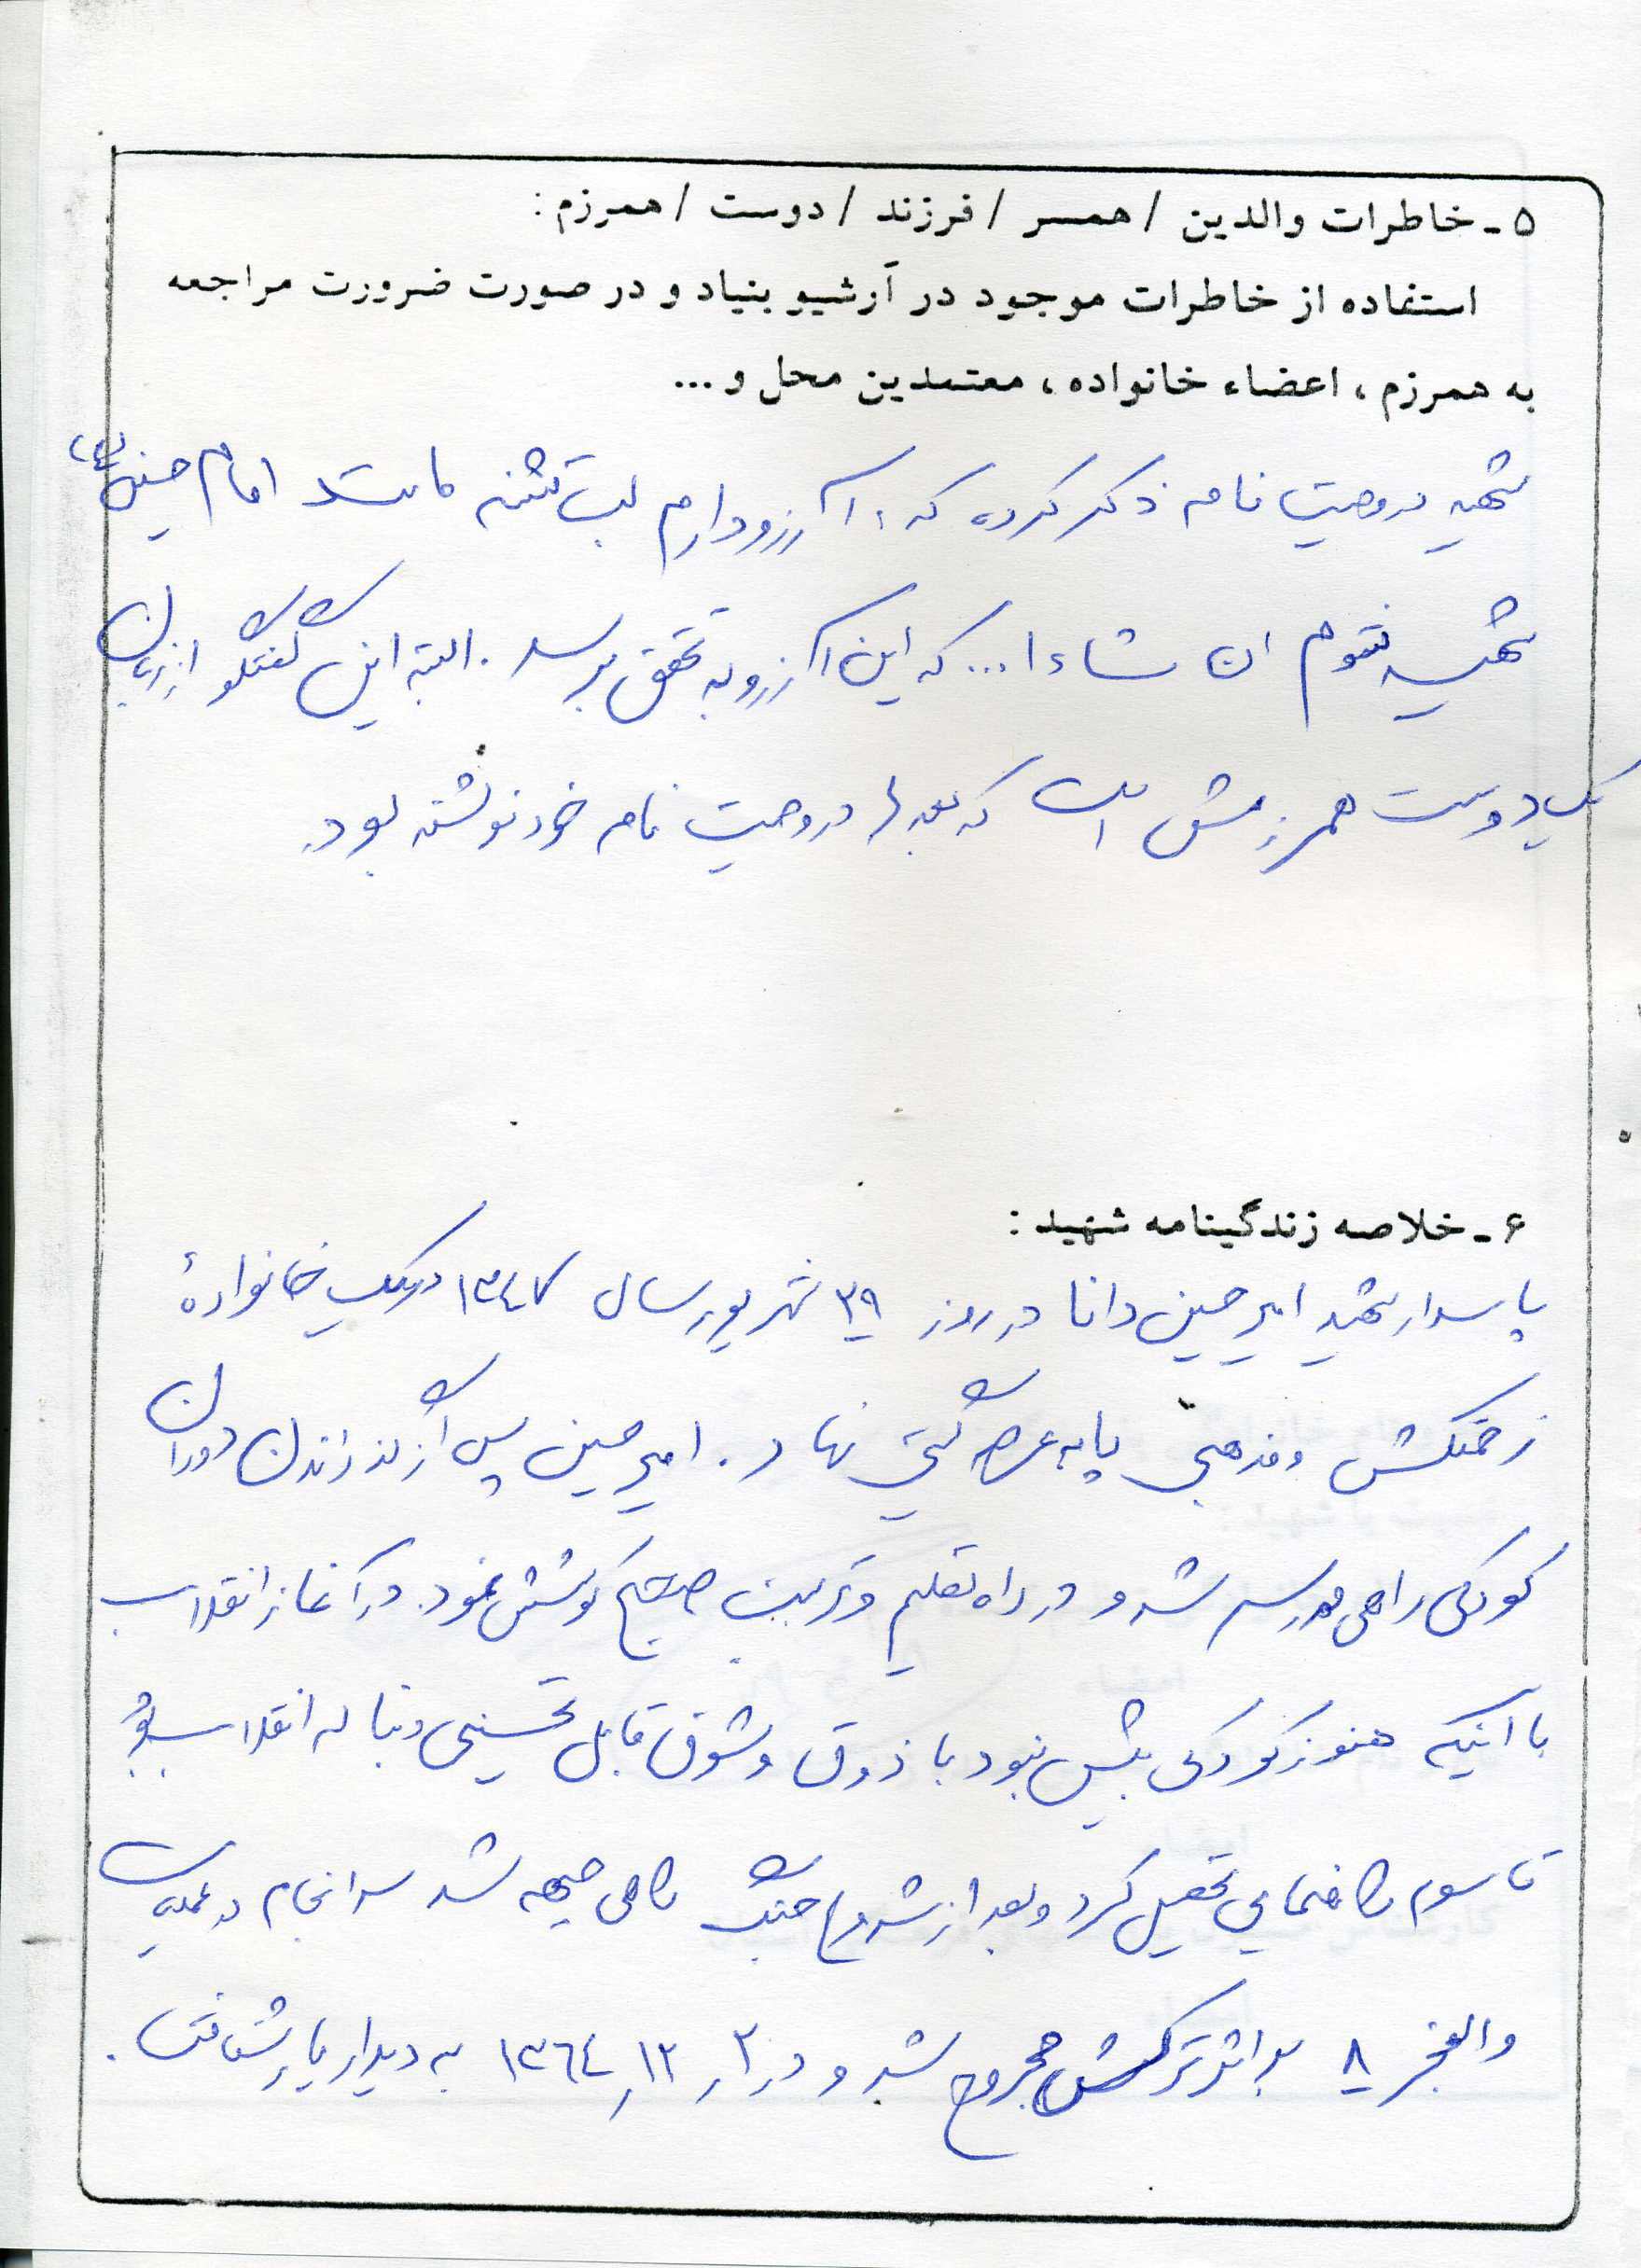 ۵ - خاطرات والدین / همسر / فرزند / دوست / همرزم :
استفاده از خاطرات موجود در آرشیو بنیاد و در صورت ضرورت مراجعه
به همرزم ، اعضاء خانواده ، معتمدین محل و ...
شهید در وصیت نامه ذکر کرده که : آرزو دارم لب تشنه مانند امام حسین (ع)
شهید شوم ان شاء ا... که این آرزو به تحقق برسد . البته این گفتگو از زبان
یک دوست همرزمش است که بعدها در وصیت نامه خود نوشته بود.
۶ - خلاصه زندگینامه شهید :
پاسدار شهید امیر حسین دانا در روز شهریور سال ۱۳۴۷ در یک خانوادهٔ
زحمتکش و مذهبی پا به عرصه گیتی نهاد . امیر حسین پس از گذراندن دوران
کودکی راهی مدرسه شد و در راه تعلیم و تربیت صحیح کوشش نمود. در آغاز انقلاب
با اینکه هنوز کودکی بیش نبود با ذوق و شوق قابل تحسینی دنباله انقلاب بود
تا سوم راهنمایی تحصیل کرد و بعد از شروع جنگ راهی جبهه شد سرانجام در عملیات
والفجر ۸ بر اثر ترکش مجروح شد و در ۱۳۶۴ به دیدار یار شتافت .